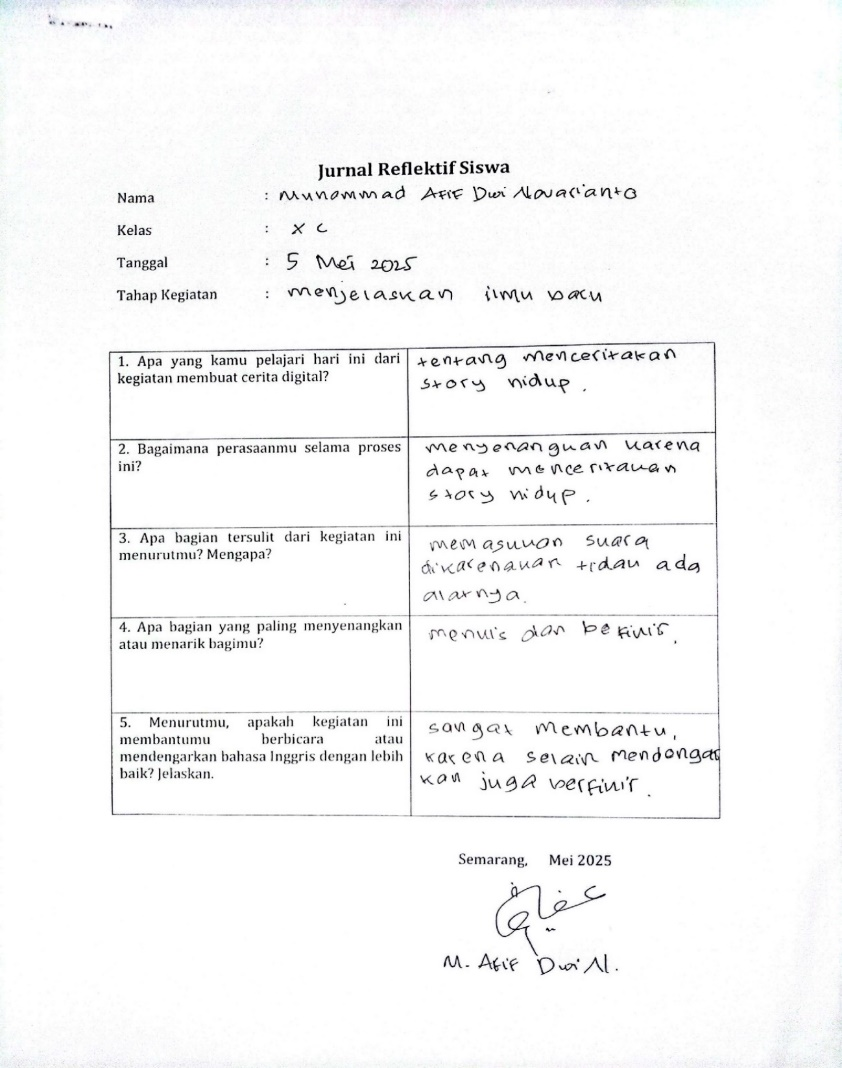 Jurnal Reflektif Siswa
Nama : Muhammad Afif Dwi Novarianto
Kelas : X C
Tanggal : 5 Mei 2025
Tahap Kegiatan : menjelaskan ilmu baru
1. Apa yang kamu pelajari hari ini dari
kegiatan membuat cerita digital?
tentang menceritakan
story hidup.
2. Bagaimana perasaanmu selama proses
ini?
menyenangkan karena
dapat menceritakan
story hidup.
3. Apa bagian tersulit dari kegiatan ini
menurutmu? Mengapa?
memasukan suara
dikarenakan tidak ada
alatnya.
4. Apa bagian yang paling menyenangkan
atau menarik bagimu?
menulis dan befikir.
5. Menurutmu, apakah kegiatan ini
membantumu berbicara atau
mendengarkan bahasa Inggris dengan lebih
baik? Jelaskan.
sangat membantu,
karena selain mendengar
kan juga berfikir.
Semarang, Mei 2025
M. Afif Dwi N.